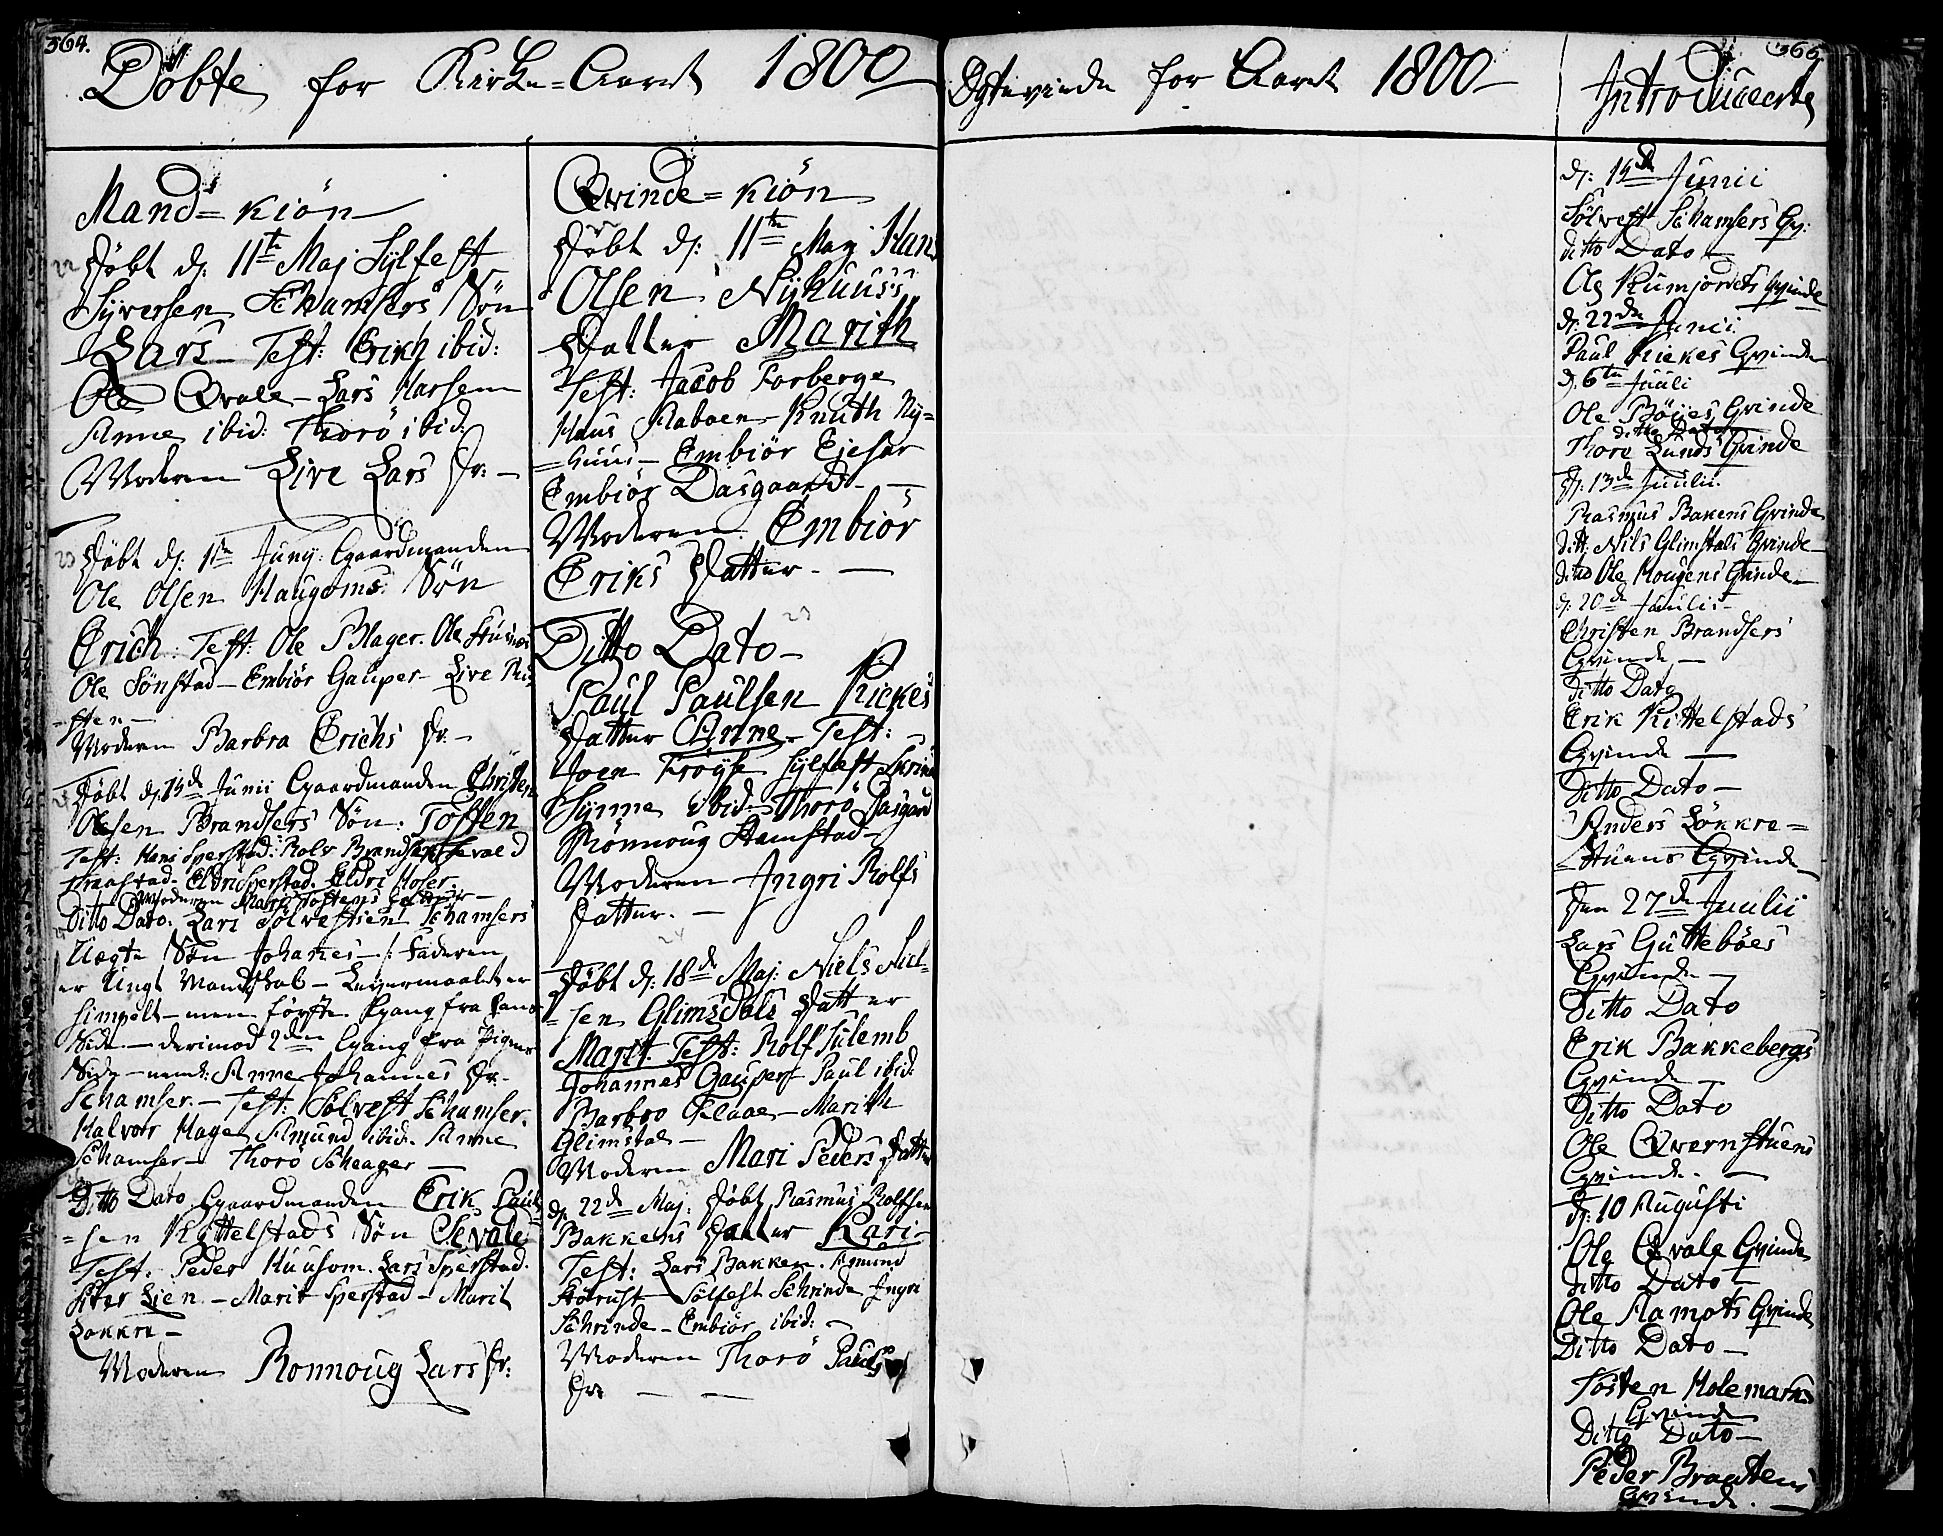 364.
Döbte for Kirke=Aaret 1800
Mand=kiön
22 Döbt d: 11te Maj Sylfest
Syversen Schamsers Sön
Lars Test: Erich ibid:
Ole Qvale - Lars Harsem
Anne ibid: Thorö ibid:
Moderen Live Lars Dr: -
23 Döbt d: 1te Juny: Gaardmanden
Ole Olsen Haugoms Sön
Erich: Test: Ole Blager. Ole
Ole Sönstad - Embiör Gauper - Live
=sten -
Moderen Barbra Erichs Dr. -
Döbt d: 15de Junii Gaardmanden Christen
Olesen Brandsers Sön: Tosten
Test: Hans Sperstad: Rolv Brandser Sevald
Eldri Sperstad. Eldri Moser.
Moderen Mari Tostens
Ditto Dato. Lars Sölvestsen Schamsers
Uægte Sön Johanes - /: Faderen
er Ungt Mandskab - Leiermaalet er
simpelt - men förste Gang fra hans
Side - derimod 2den Gang fra Pigens
Side - neml: Anne Johannes Dr. -
Schamser. - Test: Sölvest Schamser.
Halvor Hage Amund ibid. Anne
Schamser - Thorö Scheager -
Ditto Dato Gaardmanden Erik Pauls
=sen Kittelstads Sön Sevald
Test: Peder Huusom. Lars Sperstad.
Siver Lien - Marit Sperstad - Marit
Løkkre -
Moderen Ronnoug Lars Dr:
Qvinde=kiön
Döbt d: 11te Maj Hans
Olsen Nÿhuuss
Datter Marith
Test: Jacob Forberge
Haus - Knuth Ny=
=huus - Embiör Ejefar
Embiör Dasgaard -
Moderen Embiör
Eriks Datter. -
23
Ditto Dato -
Paul Paulsen Kiekes
Datter Anne - Test:
Joen Fröyse Sylfest
Synne ibid - Thorö Dasgard
Rönnoug Hamstad -
Moderen Ingri Rolfs
Datter. -
24
Döbt d: 18de Maj: Niels Niel=
=sen Glimsdals Datter
Marit Test: Rolf Sulemb
Johannes Gauper Paul ibid:
Barbro Klaae - Marith
Glimstal -
Moderen Mari Peders Datter
d: 22de Maj: Döbt Rasmus Rolfsen
Bakkens Datter Kari -
Test: Lars Bakken. Amund
Sölfest Schrinde Ingri
Schrinde - Embiör ibid: -
Moderen Thorö Pauls
Dr: -
Ægtevinde for Aaret 1800
365
Introducerte
d: 15de Junii
Sölvest Schamsers Qv:
ditto Dato -
Ole Qvinde
d: 22de Junii
Paul Kiekes Qvinde
d. 6te Juuli
Ole Böÿes Qvinde
ditto Dato
Thore Lunds Qvinde
d: 13de Juulii
Rasmus Bakens Qvinde
ditt. Nils Glimstals Qvinde -
ditto Ole Mougens Qvinde -
d: 20de Juulii -
Christen Brandsers
Qvinde -
Ditto Dato
Erik Kittelstads
Qvinde -
Ditto Dato -
Anders Løkkre=
=stuens Qvinde
Den 27de Juulii
Lars Guttebøes
Qvinde -
Ditto Dato
Erik Bakkebergs
Qvinde -
Ditto Dato
Ole Qvernstuens
Qvinde. -
d: 10 Augusti
Ole Qvale Qvinde
ditto Dato -
Ole Aamots Qvinde
Ditto Dato -
Tosten Holemarks
Qvinde
Ditto Dato -
Peder Braatens
Qvinde. -